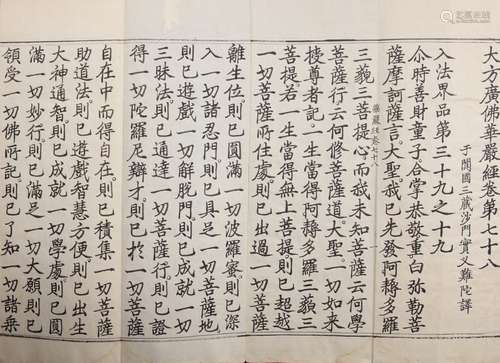 大方廣佛華嚴經卷第七十八
于闐國三藏沙門實叉難陀譯
入法界品第三十九之十九
尒時善財童子合掌恭敬重白彌勒菩
薩摩訶薩言大聖我已先發阿耨多羅
三藐三菩提心而我未知菩薩云何學
菩薩行云何修菩薩道大聖一切如来
授尊者記一生當得阿耨多羅三藐三
菩提若一生當得無上菩提則已超越
一切菩薩所住處則已出過一切菩薩
離生位則已圓滿一切波羅蜜則已深
入一切諸忍門則已具足一切菩薩地
則已遊戲一切解脫門則已成就一切
三昧法則已通達一切菩薩行則已證
得一切陀羅尼辯才則已於一切菩薩
自在中而得自在則已積集一切菩薩
助道法則已遊戲智慧方便則已出生
大神通智則已成就一切學處則已圓
滿一切妙行則已滿足一切大願則已
領受一切佛所記則已了知一切諸乗